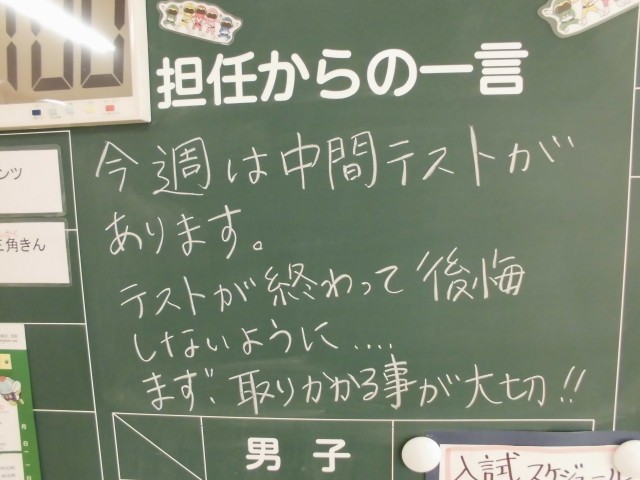 担任からの一言
今週は中間テストが
あります。
テストが終わって後悔
しないように....
まず、取りかかる事が大切!!
ンツ
三角きん
男子
入試スケジュール